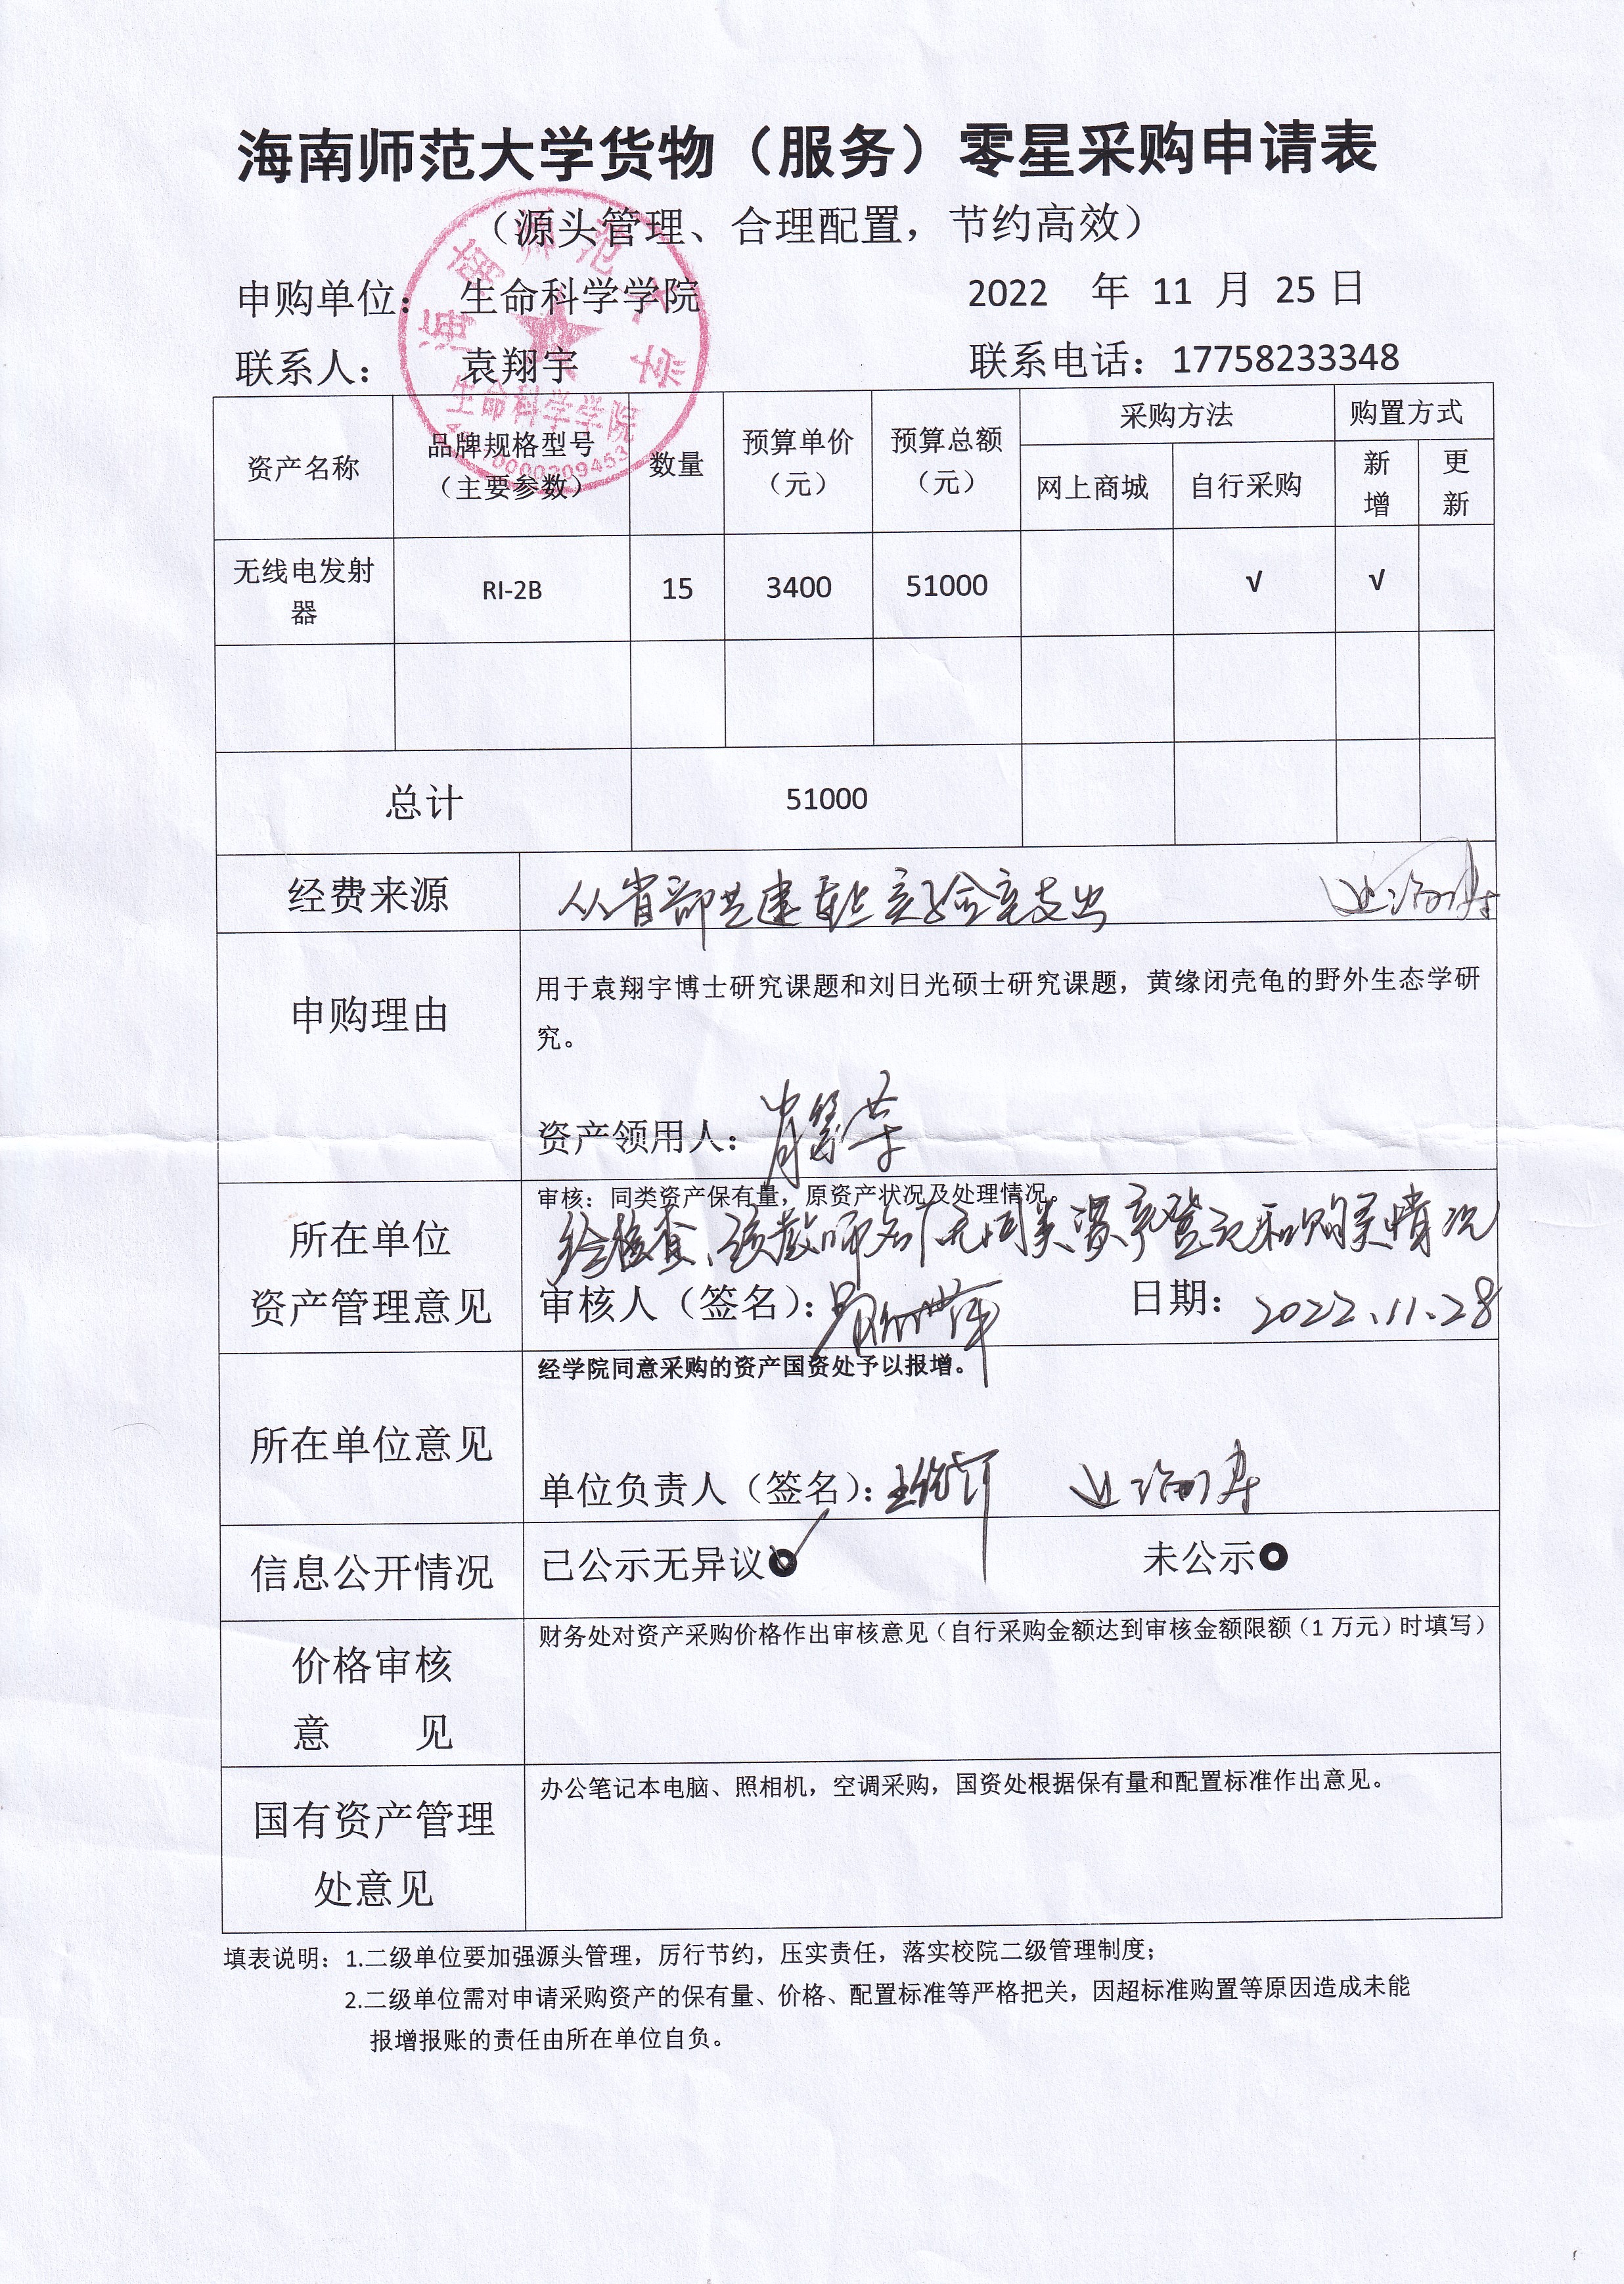 海南师范大学货物（服务）零星采购申请表
（源头管理、合理配置，节约高效）
申购单位： 生命科学学院 2022 年 11 月 25 日
联系人： 袁翔宇 联系电话：17758233348
海南师范大学
生命科学学院
资产名称 品牌规格型号（主要参数） 数量 预算单价（元） 预算总额（元） 采购方法 购置方式
网上商城 自行采购 新增 更新
无线电发射器 RI-2B 15 3400 51000 √ √
总计 51000
经费来源 从省部共建重点实验室支出
申购理由 用于袁翔宇博士研究课题和刘日光硕士研究课题，黄缘闭壳龟的野外生态学研
究。
资产领用人：肖繁荣
审核：同类资产保有量，原资产状况及处理情况。
所在单位 经核查、该教师名下无同类资产登记和购买情况
资产管理意见 审核人（签名）： 日期：2022.11.28
经学院同意采购的资产国资处予以报增。
所在单位意见
单位负责人（签名）：
信息公开情况 已公示无异议 未公示
财务处对资产采购价格作出审核意见（自行采购金额达到审核金额限额（1 万元）时填写）
价格审核
意 见
办公笔记本电脑、照相机，空调采购，国资处根据保有量和配置标准作出意见。
国有资产管理
处意见
填表说明：1.二级单位要加强源头管理，厉行节约，压实责任，落实校院二级管理制度；
2.二级单位需对申请采购资产的保有量、价格、配置标准等严格把关，因超标准购置等原因造成未能
报增报账的责任由所在单位自负。